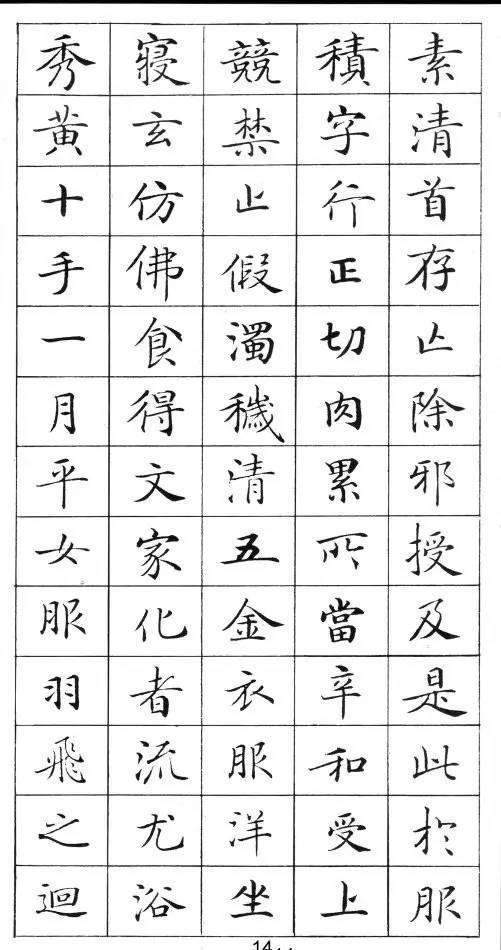 素清首存亾除邪授及是此於服
積字行正切肉累所當辛和受上
競禁止假濁穢清五金衣服洋坐
寢玄仿佛食得文家化者流尤浴
秀黃十手一月平女服羽飛之迴
14